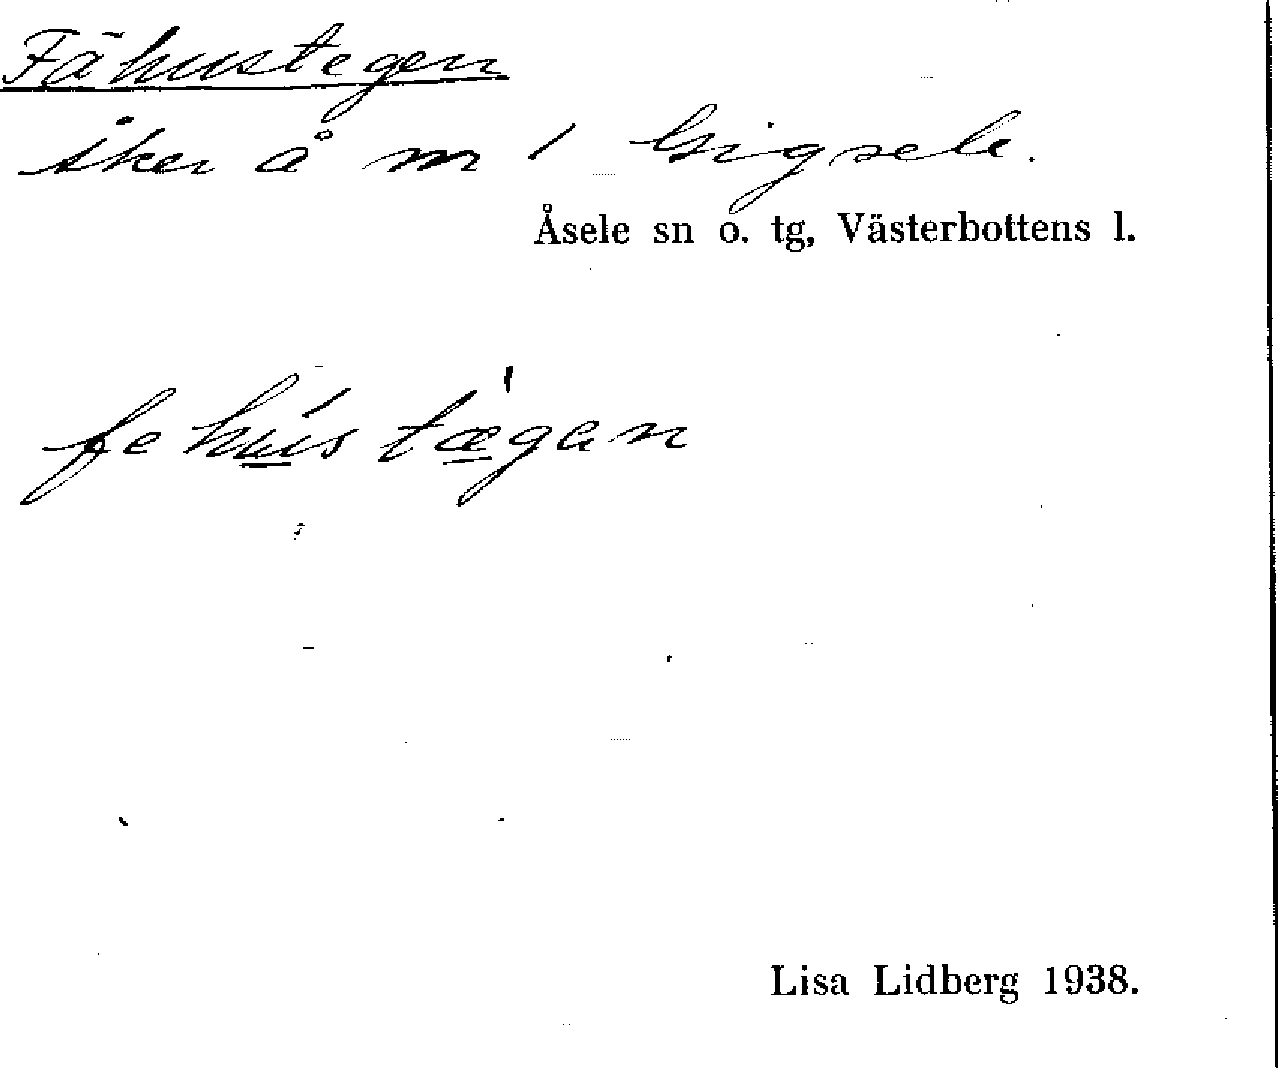 Fähustegen
åker å nr 1 Gigsele.
Åsele sn o. tg, Västerbottens l.
fehústǽgan
Lisa Lidberg 1938.